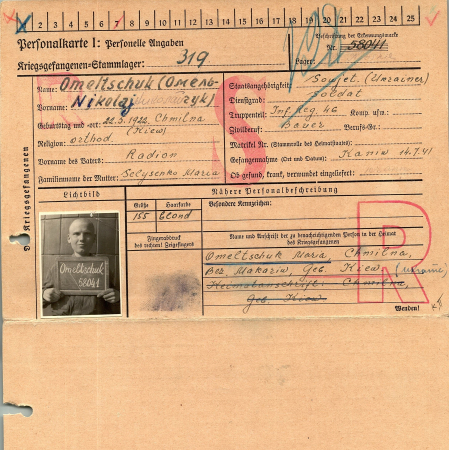 1 2 3 4 5 6 7 8 9 10 11 12 13 14 15 16 17 18 19 20 21 22 23 24 25
Personalkarte I: Personelle Angaben
Beschriftung der Erkennungsmarke
Nr. 58041
Kriegsgefangenen-Stammlager: 319
Lager:
Name: Omeltschuk (Омель-
Vorname: Nikolaj
Geburtstag und -ort: 22.5.1922, Chmilna
(Kiew)
Religion: orthod.
Vorname des Vaters: Radion
Familienname der Mutter: Selysenko Maria
Staatsangehörigkeit: Sowjet. (Ukrainer)
Dienstgrad: Soldat
Truppenteil: Inf. Reg. 46 Komp. usw.:
Zivilberuf: Bauer Berufs-Gr.:
Matrikel Nr. (Stammrolle des Heimatstaates):
Gefangennahme (Ort und Datum): Kaniw 14.7.41
Ob gesund, krank, verwundet eingeliefert:
Des Kriegsgefangenen
Lichtbild
Nähere Personalbeschreibung
Größe Haarfarbe Besondere Kennzeichen:
165 blond
Fingerabdruck
des rechten! Zeigefingers
Name und Anschrift der zu benachrichtigenden Person in der Heimat
des Kriegsgefangenen
Omeltschuk Maria Chmilna,
Bez. Makariw, Geb. Kiew, (Ukraine)
Heimatanschrift: Chmilna,
Geb. Kiew
Wenden!
R
Omeltschuk
58041